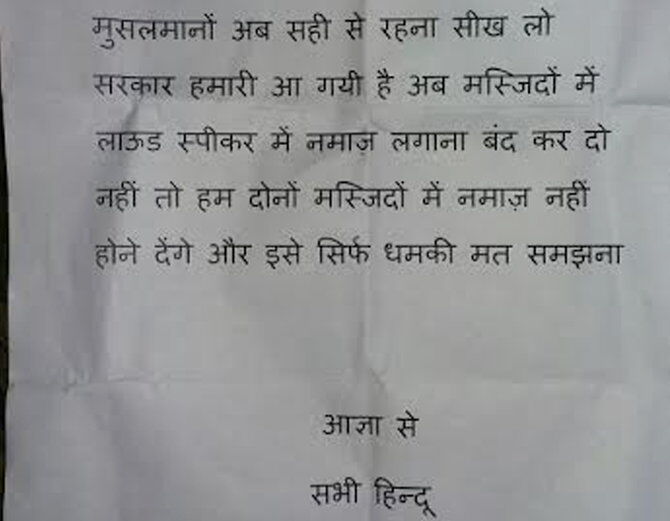 मुसलमानों अब सही से रहना सीख लो
सरकार हमारी आ गयी है अब मस्जिदों में
लाऊड स्पीकर में नमाज़ लगाना बंद कर दो
नहीं तो हम दोनों मस्जिदों में नमाज़ नहीं
होने देंगे और इसे सिर्फ धमकी मत समझना
आज्ञा से
सभी हिन्दू